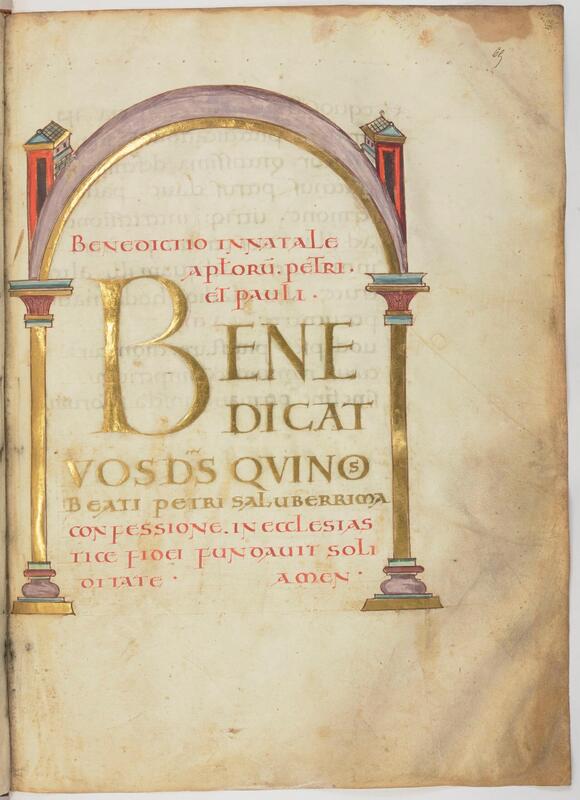 65
BENEDICTIO IN NATALE
APŁORŪ. PETRI.
ET PAULI.
BENE
DICAT
VOS DS̄ QVI NOS
BEATI PETRI SALUBERRIMA
CONFESSIONE. IN ECCLESIAS
TICE FIDEI FUNDAVIT SOLI
DITATE. AMEN.